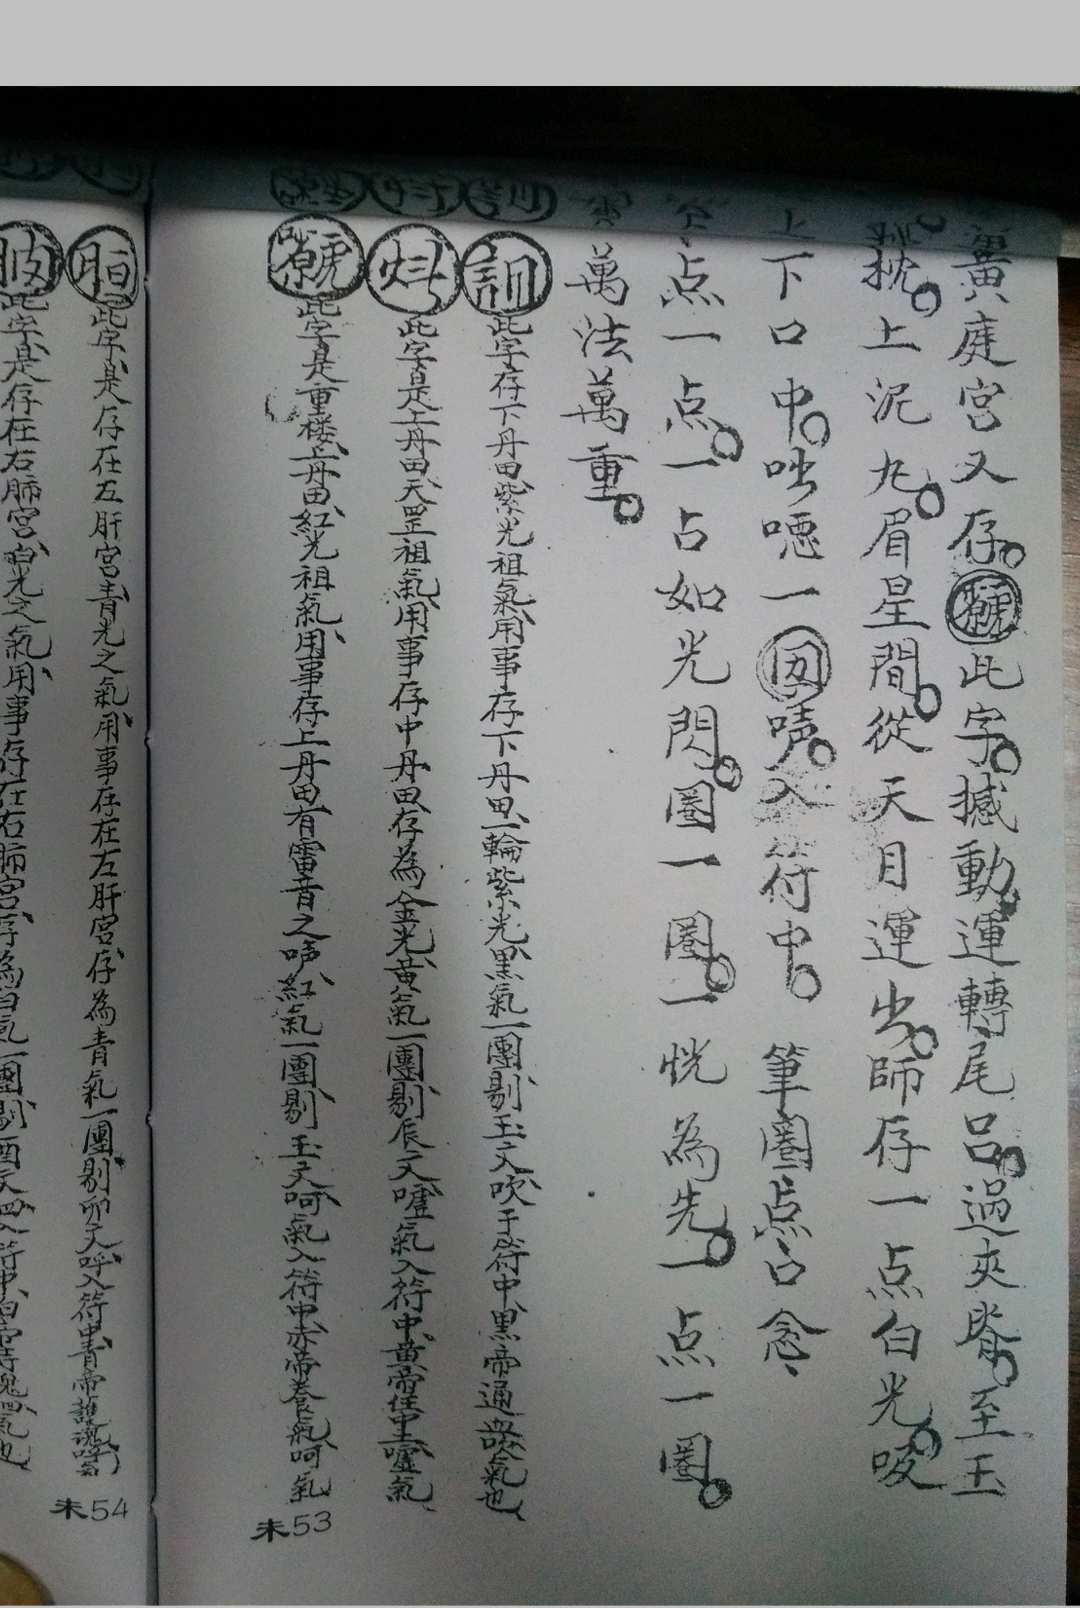 黃庭宮又存。此字。撼動。運轉尾呂。過夾脊。至玉
枕。上泥丸。眉星間。從天目運出。師存一点白光。唆
上下口中。咄噁一囝嘖。入符中。筆圈点口念、
点一点。一占如光閃。圈一圈。一恍為先。一点一圈。
萬法萬重。
訓此字存下丹田、紫光祖氣、用事存下丹田、一輪紫光、黑氣一團、剔玉文、吹于符中、黑帝通血、吹氣也、
此字是上丹田、天罡祖氣、用事存中丹田、存為金光、黃氣一團、剔辰文噓氣入符中、黃帝住中、噓氣、
此字是重楼、上丹田、紅光祖氣、用事存上丹田、有雷音之吽、紅氣一團、剔玉文呵、氣入符中、赤帝養氣、呵氣
未53
此字是存在左肝宮、青光之氣、用事存在左肝宮、存為青氣一團、剔卯文、呼入符中、青帝護魂、
此字是存在右肺宮、白光之氣、用事存在右肺宮、存為白氣一團、剔酉文、四入符中、白帝侍鬼、四氣也
未54